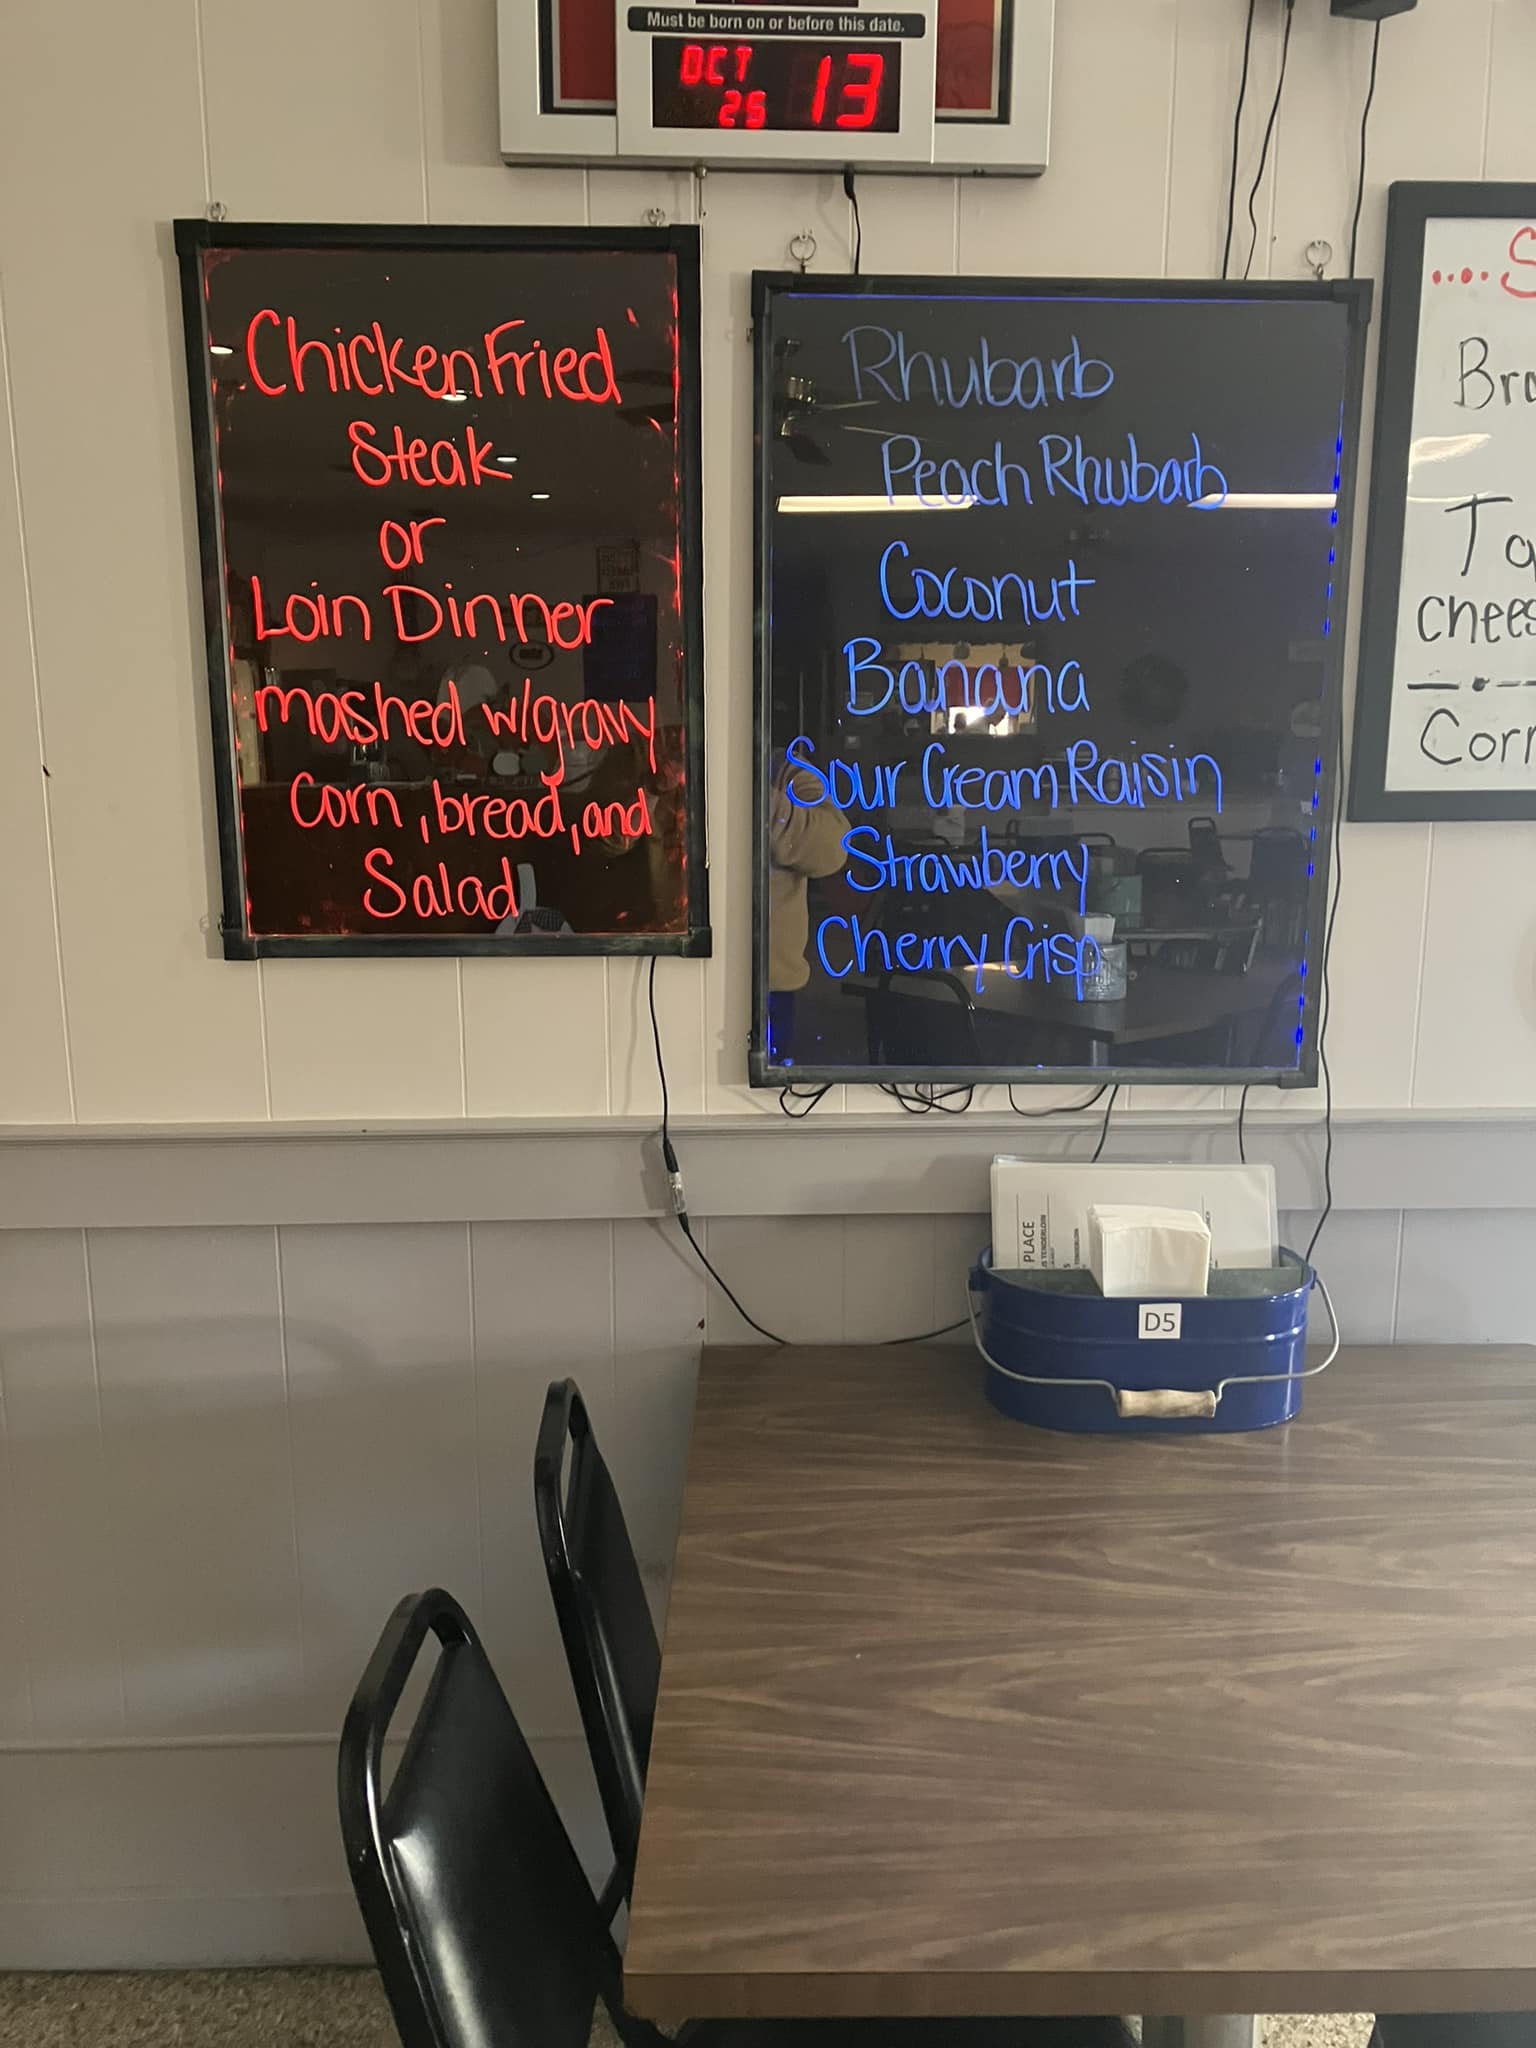 Must be born on or before this date.
OCT
25 13
Chicken Fried
Steak
or
Loin Dinner
mashed w/gravy
Corn, bread, and
Salad
Rhubarb
Peach Rhubarb
Coconut
Banana
Sour Cream Raisin
Strawberry
Cherry Crisp
.... S
Bro
Ta
chees
Corn
PLACE
TENDERLOIN
TENDERLOIN
D5